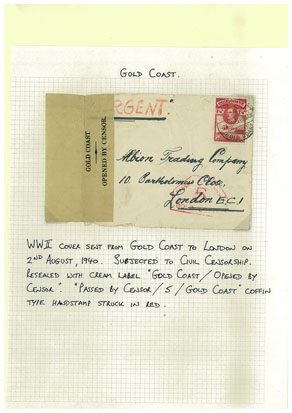 GOLD COAST.
URGENT".
GOLD COAST
OPENED BY CENSOR.
Albion Trading Company
10. Bartholomew Close,
London E.C.1
5
WWII COVER SENT FROM GOLD COAST TO LONDON ON
2ND AUGUST, 1940. SUBJECTED TO CIVIL CENSORSHIP.
RESEALED WITH CREAM LABEL "GOLD COAST / OPENED BY
CENSOR". "PASSED BY CENSOR / 5 / GOLD COAST" COFFIN
TYPE HANDSTAMP STRUCK IN RED.